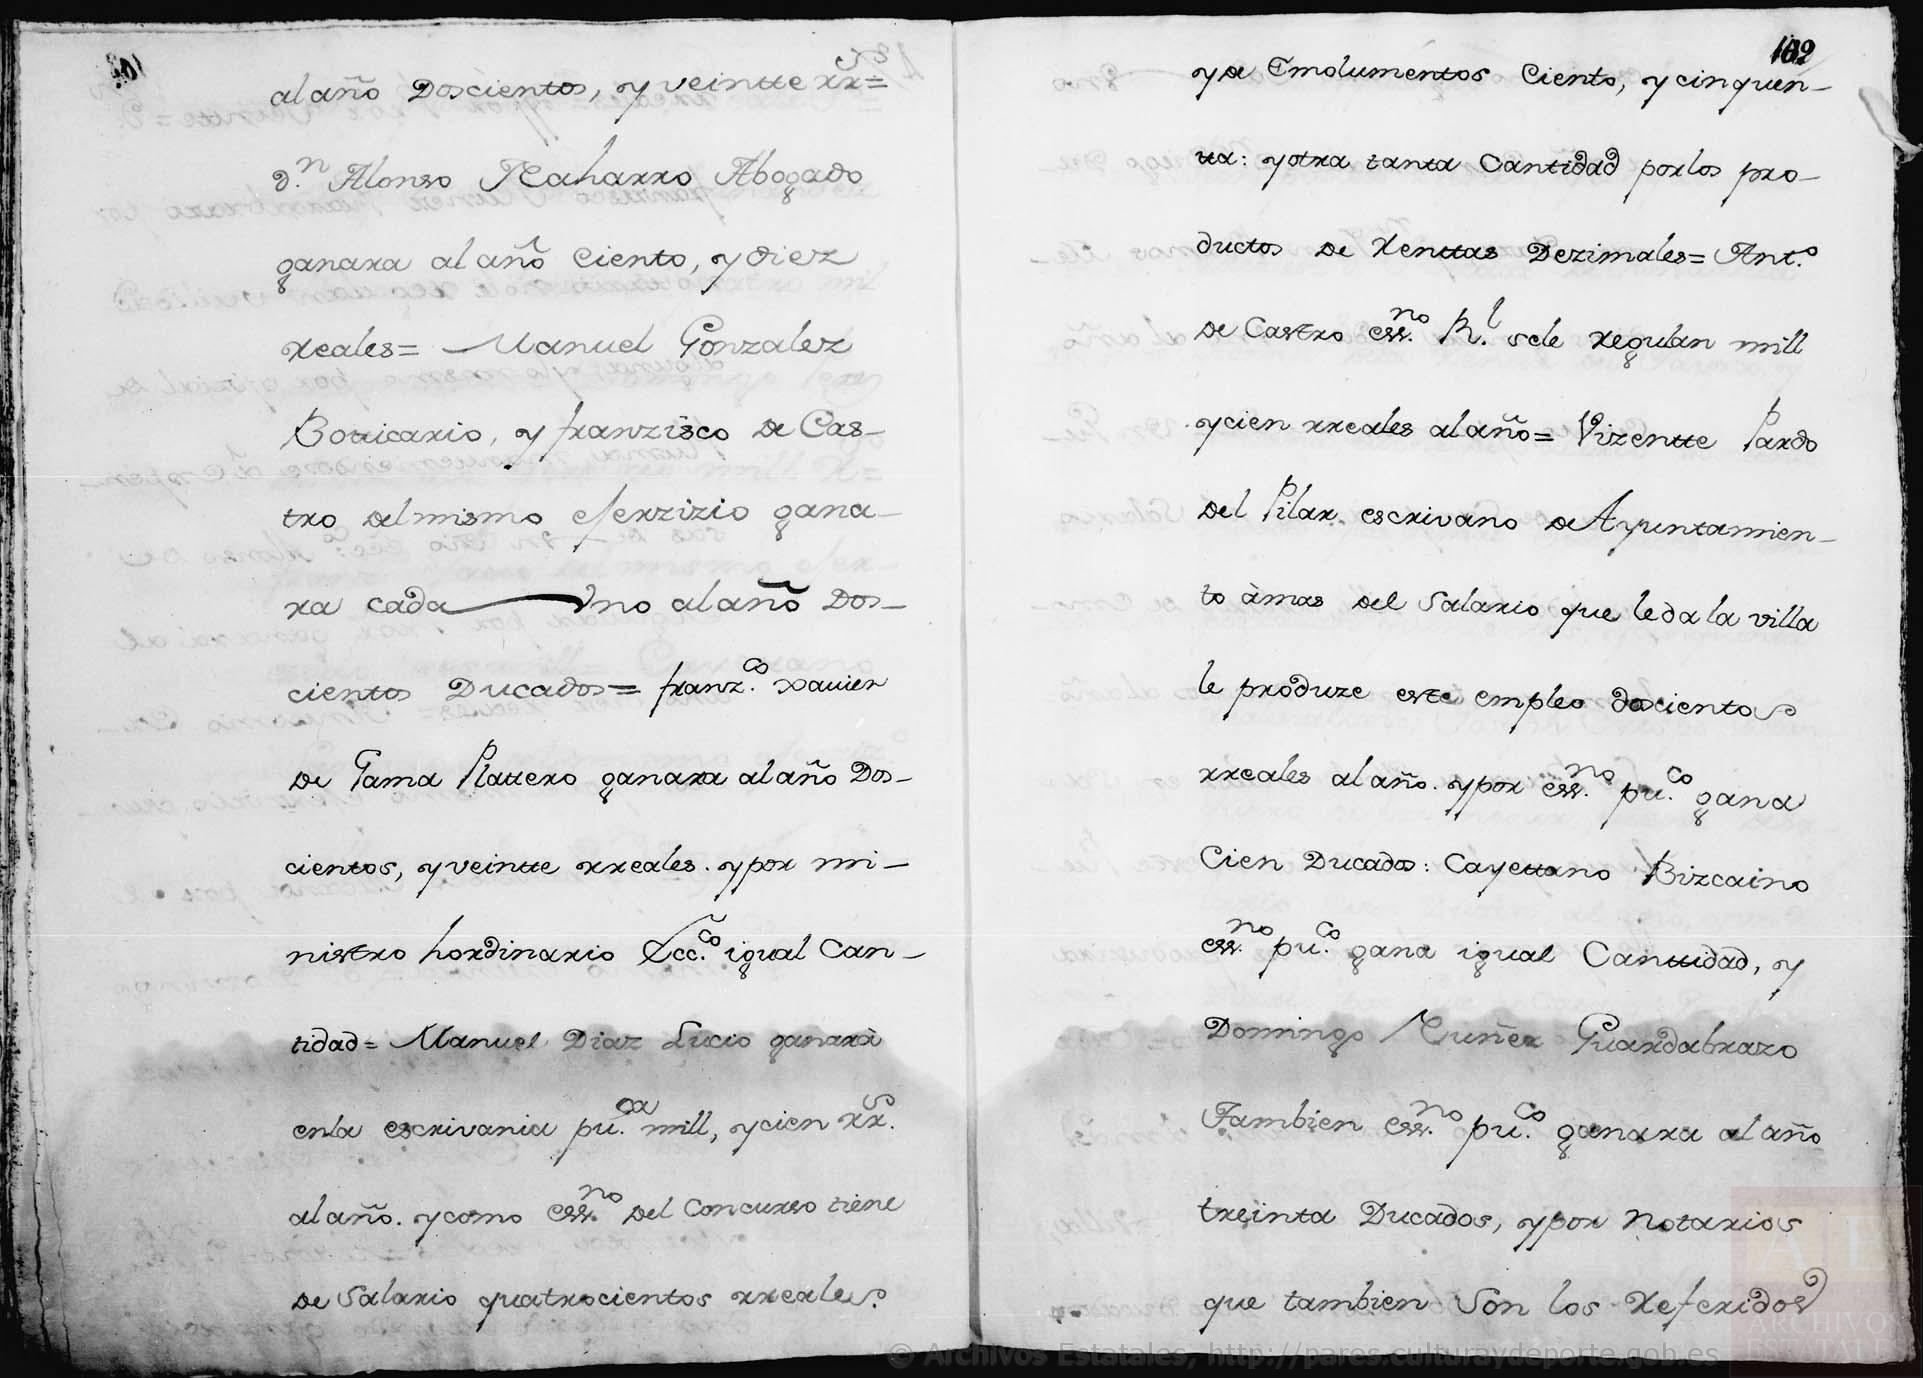 al año Doscientos, y veintte rr.s=
d.n Alonso Naharro Abogado
ganara al año Ciento, y diez
reales= Manuel Gonzalez
Botticario, y franzisco de Cas-
tro del mismo eferzizio gana-
ra cada Vno al año Dos-
cientos Ducados= franz.co xavier
de Gama Plattero ganara al año Dos-
cientos, y veintte rreales. y por mi-
nistro hordinario Ecc.co igual Can-
tidad= Manuel Diaz Lucio ganarà
en la escrivania pu.ca mill, y cien rr.s
al año. y como ess.no del Concurso tiene
de Salario quatrocientos rreales.
102
y de Emolumentos Ciento, y cinquen-
tta: y otra tanta Cantidad por los pro-
ductos de Renttas Dezimales= Ant.o
de Castro ess.no R.l se le regulan mill
y cien rreales al año= Vizentte Pardo
del Pilar escrivano de Ayuntamien-
to àmas del Salario que le da la villa
le produze este empleo doscientos
rreales al año. y por ess.no pu.co gana
Cien Ducados: Cayettano Bizcaino
ess.no pu.co gana igual Canttidad, y
Domingo Nuñez Guardabrazo
Tambien ess.no pu.co ganara al año
treinta Ducados, y por Notarios
que tambien Son los Referidos
© Archivos Estatales, http://pares.culturaydeporte.gob.es
AE
ARCHIVOS
ESTATALES